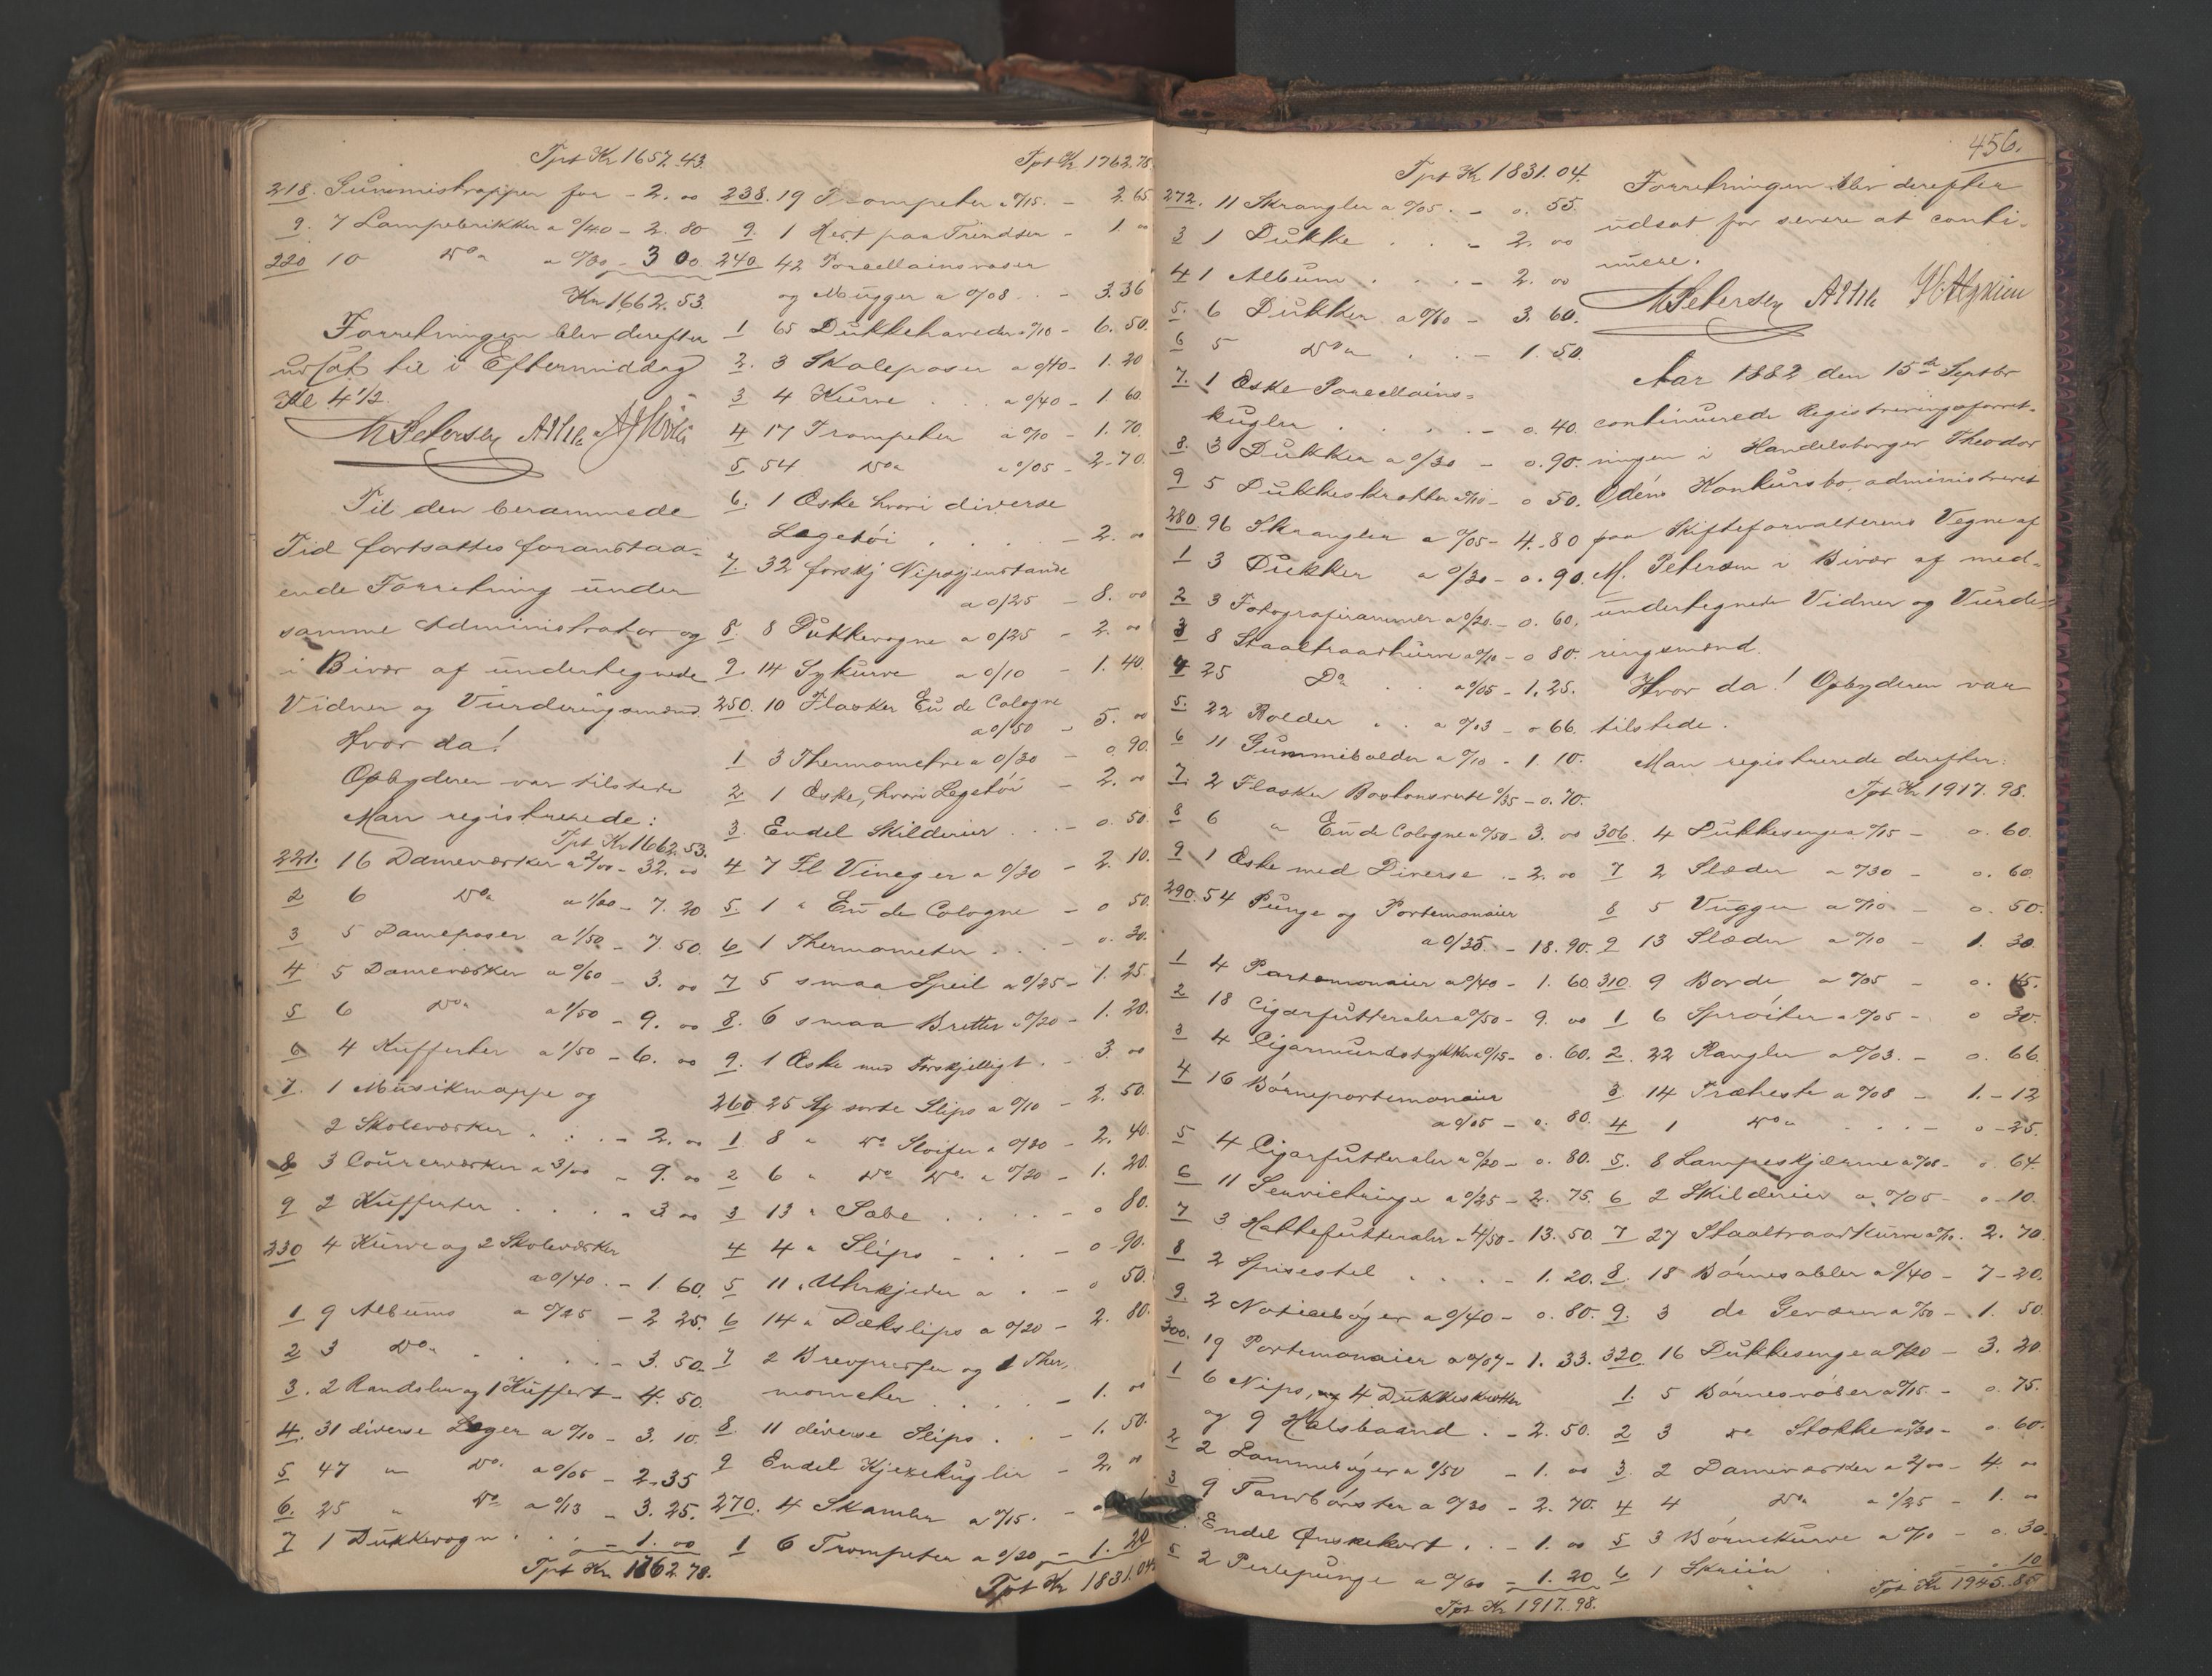 Tpt Kr 1657.43.
218. Gummistrapper for - 2. 00
9. 7 Lampebrikker a 0/40 - 2. 80
220 10 Do a 0/30 - 3 00
Kr 1662.53.
Forretningen blev derefter
udsat til i Eftermiddag
Kl 4 1/2.
M Petersen
Til den berammede
Tid fortsattes foranstaa-
ende Forretning under
samme Administrator og
i Bivær af undertegnede
Vidner og Vurderingsmænd.
Hvor da!
Opbyderen var tilstede
Man registrerede:
Tpt Kr 1662.53.
221. 16 Damevæsker a 2/00 - 32. 00
2 6 Do a 1/20 - 7. 20
3 5 Dameposer a 1/50 - 7. 50
4 5 Damevæsker a 0/60 - 3. 00
5 6 Do a 1/50 - 9. 00
6 4 Kufferter a 1/50 - 6. 00
7. 1 Musikmappe og
2 Skolevæsker . . . - 2. 00
8 3 Courervæsker a 3/00 - 9. 00
9 2 Kufferter . . . . - 3. 00
230 4 Kurve og 2 Skolevæsker
a 0/40 . - 1. 60.
1 9 Albums a 0/25 - 2 25.
2 3 Do . . . . - 3. 50.
3. 2 Randsler og 1 Kuffert - 4. 50.
4. 31 diverse Løger a 0/10 - 3. 10.
5 47 " Do a 0/05 - 2.35
6. 25 " Do a 0/13 - 3. 25.
7 1 Dukkevogn . . . - 1. 00
Tpt Kr 1762 78.
Tpt Kr 1762.78.
238. 19 Trompeter a 0/15. - 2. 65
9. 1 Hest paa Trindser - 1 00
240 42 Porcellainsvaser
og Mugger a 0/08 . - 3.36
1 65 Dukkehoveder a 0/10 - 6. 50.
2. 3 Skoleposer a 0/40 - 1. 20
3 4 Kurve . . a 0/40 - 1 60.
4 17 Trompeter a 0/10 - 1. 70.
5. 54 Do a 0/05 - 2.70.
6. 1 Æske hvori diverse
Legetøi . . . . - 2. 00
7. 32 forskj Nipsgjenstande
a 0/25 - 8. 00
8. 8 Dukkevogne a 0/25 - 2. 00
9. 14 Sykurve a 0/10 - 1. 40.
250. 10 Flasker Eu de Cologne
a 0/50 - 5. 00
1 3 Thermometre a 0/30 - 0 90.
2 1 Æske, hvori Legetøi - 2. 00
3. Endel Skilderier . . . - 0. 50.
4 7 Fl Vineger a 0/30 - 2. 10.
5. 1 " Eu de Cologne - 0 50.
6 1 Thermometer . . - 0. 30.
7 5 smaa Speil a 0/25 - 1. 25.
8. 6 smaa Bretter a 0/20 - 1. 20.
9. 1 Æske med Forskjelligt . - 3. 00
260 25 St sorte Slips a 0/10 - 2. 50.
1. 8 " Do Sloifer a 0/30 - 2. 40.
2 6 " Do Do a 0/20 - 1. 20.
3 13 " Sæbe . . . . - 0 80.
4 4 " Slips - . . - 0 -90.
5 11 " Uhrkjeder a . - 0 50.
6 14 " Dækslips a 0/20 - 2. 80.
7 2 Brevpresser og 1 Ther,
mometer . . . . - 1. 00
8. 11 diverse Slips . . - 1. 50.
9 Endel Kjexekugler - 2. 00
270. 4 Skamler a 0/15. -
1 6 Trompeter a 0/20 - 1. 20
Tpt Kr 1831.04.
456.
Tpt Kr 1831.04.
272. 11 Skrangler a 0/05. - 0. 55.
3 1 Dukke . . - 2. 00
4 1 Album . . . - 2. 00
5. 6 Dukker a 0/60 - 3. 60.
6 5 Do . . - 1. 50.
7. 1 Æske Porcellains-
kugler . . . . - 0. 40.
8. 3 Dukker a 0/30 - 0.90.
9 5 Dukkeskrotter a 0/10 - 0 50.
280. 96 Skrangler a 0/05 - 4. 80
1 3 Dukker a 0/30 - 0. 90.
2 3 Fotografirammer a 0/20 - 0. 60.
3 8 Staaltraadkurve a 0/10 - 0 80.
4 25 Do . . a 0/05 - 1, 25.
5. 22 Bolder . . a 0/03 - 0 66.
6 11 Gummibolder a 0/10 - 1. 10.
7. 2 Flasker Bostonsvæte 0/35 - 0. 70.
8 6 " Eu de Cologne a 0/50 - 3. 00
9 1 Æske med Diverse . - 2. 00
290. 54 Punge og Portemonaier
a 0/35. - 18. 90.
1 4 Portemonaier a 0/40 - 1. 60
2 18 Cigarfutteraler a 0/50 - 9. 00
3 4 Cigarmundstykker a 0/15 - 0. 60.
4 16 Børneportemonaier
a 0/05 - 0. 80.
5 4 Cigarfutteraler a 0/20 - 0. 80.
6 11 Servietringe a 0/25 - 2. 75.
7 3 Hattefutteraler a 4/50 - 13. 50.
8 2 Spisestel . . . . - 1. 20.
9. 2 Noticebøger a 0/40 - 0. 80.
300. 19 Portemonaier a 0/07 - 1. 33.
1 6 Nips, og 4 Dukkeskrotter
og 9 Halsbaand . - 2. 50.
2. 2 Lommebøger a 0/50 - 1. 00
3 9 Tandbørster a 0/30 - 2. 70.
Endel Ønskekort . . - 1. 00
5 2 Perlepunge a 0/60 - 1. 20
Tpt Kr 1917.98.
Forretningen blev derefter
udsat for senere at conti-
nuere.
M Petersen
Aar 1882 den 15de Septbr
continuerede Registreringsforret-
ningen i Handelsborger Theodor
Odéns Konkursbo administreret
paa Skifteforvalterens Vegne af
M. Petersen i Bivær af med-
undertegnede Vidner og Vurde-
ringsmænd.
Hvor da! Opbyderen var
tilstede.
Man registrerede derefter:
Tpt Kr 1917. 98.
306. 4 Dukkesenge a 0/15 - 0. 60.
7 2 Slæder a 0/30 - 0. 60.
8 5 Vugger a 0/10 - 0. 50.
9 13 Slæder a 0/10 - 1. 30.
310. 9 Borde a 0/05 - 0. 45.
1 6 Sprøiter a 0/05 - 0 30.
2. 22 Rangler a 0/03. - 0. 66.
3. 14 Træheste a 0/08 - 1. - 12
4 1 Do . . . - 0 - 25.
5. 8 Lampeskjærme a 0/08 - 0. 64.
6 2 Skilderier a 0/05 - 0 - 10.
7 27 Staaltraadkurve a 0/10. 2. 70.
8. 18 Børnesabler a 0/40 - 7 - 20.
9. 3 do Geværer a 0/50 - 1. 50.
320 16 Dukkesenge a 0/20 - 3. 20.
1. 5 Børnesvøber a 0/15. - 0. 75.
2 3 do Stokke a 0/20 - 0 60.
3. 2 Damevæsker a 2/00 - 4. 00
4 4 Do a 0/25 - 1. 00
5 3 Børnekurve a 0/10 - 0. 30.
6 1 Skriin . . - 0 10
Tpt Kr 1945.85